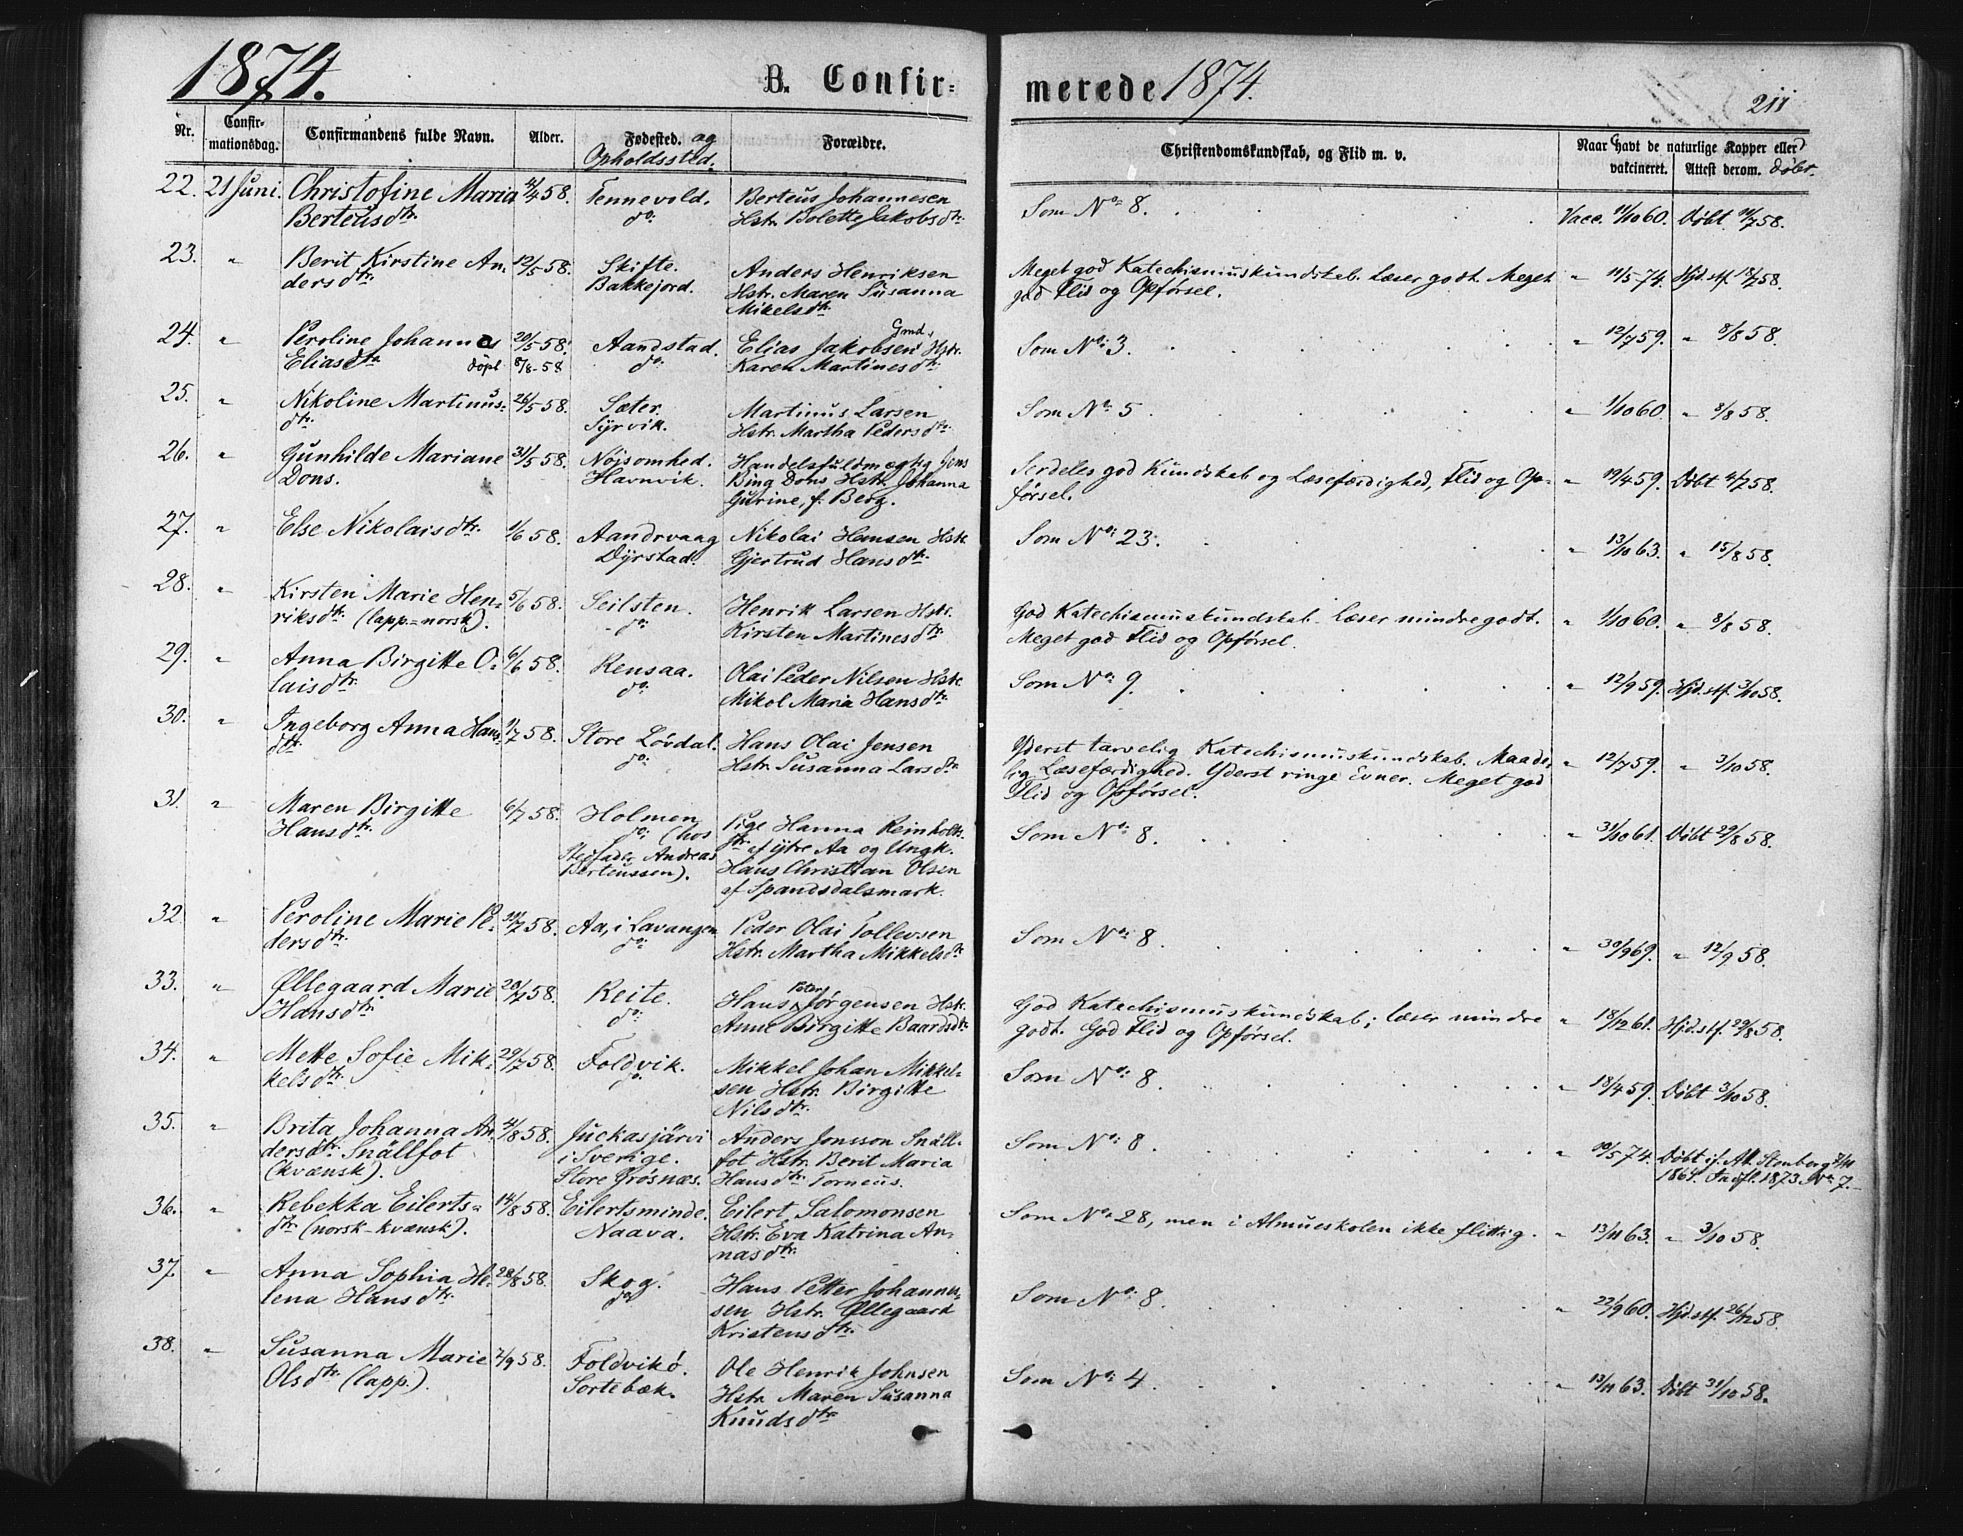 1874.
B. Confir-
merede 1874.
211
Nr.
Confir-
mationsdag.
Confirmandens fulde Navn.
Alder.
Fødested. og
Opholdssted.
Forældre.
Christendomskundskab, og Flid m. v.
Naar havt de naturlige Kopper eller
vakcineret. Attest derom. Døbt.
22. 21 Juni. Christofine Maria 4/4 58. Tennevold. Berteus Johannesen
Berteusdtr. do. Hstr. Bolette Jakobsdtr.
Som No. 8. Vacc. 11/10 60. Døbt 11/7 58.
23. " Berit Kirstine An- 12/5 58. Skifte. Anders Henriksen
dersdtr. Bakkejord. Hstr. Maren Susanna
Mikelsdtr.
Meget god Katechismuskundskab. Læser godt. Meget " 11/5 74. Hjd. stf. 18/7 58.
god Flid og Opførsel.
24. " Peroline Johanna 20/5 58. Aandstad. Elias Jakobsen Gmd. Hstr.
Eliasdtr døpt 8/8-58 do. Karen Martinesdtr.
Som No. 3. " 12/7 59. " 8/8 58.
25. " Nikoline Martinus- 26/5 58. Sæter. Martinus Larsen
dtr. Syrvik. Hstr. Martha Pedersdtr.
Som No. 5. " 1/10 60. " 8/8 58.
26. " Gunhilde Mariane 31/5 58. Nøisomhed. Handelsfuldmægtig Jens
Dons. Havnvik. Bing Dons Hstr. Johanna
Gurine, f. Berg.
Serdeles god Kundskab og Læsefærdighed, Flid og Op- " 19/4 59. Døbt 4/7 58.
førsel.
27. " Else Nikolaisdtr. 1/6 58. Aandrvaag Nikolai Hansen Hstr.
Dyrstad. Gjertrud Hansdtr.
Som No. 23. " 13/10 63. " 15/8 58.
28. " Kirsten Marie Hen- 5/6 58. Seilsten. Henrik Larsen Hstr.
riksdtr. (lapp=norsk). do. Kirsten Martinesdtr.
God Katechismuskundskab. Læser mindre godt. " 1/10 60. " 8/8 58.
Meget god Flid og Opførsel.
29. " Anna Birgitte O- 6/6 58. Rensaa. Olai Peder Nilsen Hstr.
laisdtr. do. Mikol Maria Hansdtr.
Som No. 9. " 12/9 59. Hjd. stf. 3/10 58.
30. " Ingeborg Anna Hans- 1/7 58. Store Løvdal. Hans Olai Jensen
dtr. do. Hstr. Susanna Larsdtr.
Yderst tarvelig Katechismuskundskab. Maade- " 12/7 59. " 3/10 58.
lig Læsefærdighed. Yderst ringe Evner. Meget god
Flid og Opførsel.
31. " Maren Birgitte 6/7 58. Holmen Pige Hanna Reinholts-
Hansdtr. do. (hos dtr. af ytre Aa og Ungk.
Stedfader Andreas Hans Christian Olsen
Berteussen). af Spandsdalsmark.
Som No. 8. " 31/10 61. Døbt 29/8 58.
32. " Peroline Marie Pe- 7 58. Aa, i Lavangen Peder Olai Tollevsen
dersdtr. do. Hstr. Martha Mikkelsdtr
Som No. 8. " 30/9 69. " 12/9 58.
33. " Øllegaard Marie 20/7 58. Reite. Hans Peter Jørgensen Hstr.
Hansdtr. do. Anne Birgitte Baardsdtr
God Katechismuskundskab; læser mindre " 18/12 61. Hjd. stf. 29/8 58.
godt. God Flid og Opførsel.
34. " Mette Sofie Mik- 29/7 58. Foldvik. Mikkel Johan Mikkel-
kelsdtr. do. sen Hstr. Birgitte
Nilsdtr.
Som No. 8. " 18/4 59. Døbt 3/10 58.
35. " Brita Johanna An- 4/8 58. Juckasjärvi Anders Jonsson Snäll-
dersdtr. Snällfot i Sverige. fot Hstr. Berit Maria
(kvænsk). Store Grøsnæs. Hansdtr. Torneus.
Som No. 8. " 10/5 74. Døbt if. Att. Stenborg
Indfl. 1873 No. 7.
36. " Rebekka Eilerts- 14/8 58. Eilertsminde. Eilert Salomonsen
dtr. (norsk-kvænsk). Naava. Hstr. Eva Katrina An-
nasdtr.
Som No. 28, men i Almueskolen ikke flittig. " 13/11 63. " 3/10 58.
37. " Anna Sophia He- 28/8 58. Skog. Hans Petter Johannes-
lena Hansdtr. do. sen Hstr. Øllegaard
Kristensdtr.
Som No. 8. " 22/9 60. Hjd. stf. 26/12 58.
38. " Susanna Marie 2/9 58. Foldvikø. Ole Henrik Johnsen
Olsdtr. (lapp.). Sortebæk. Hstr. Maren Susanna
Knudsdtr
Som No. 4. " 13/11 63. Døbt 31/10 58.